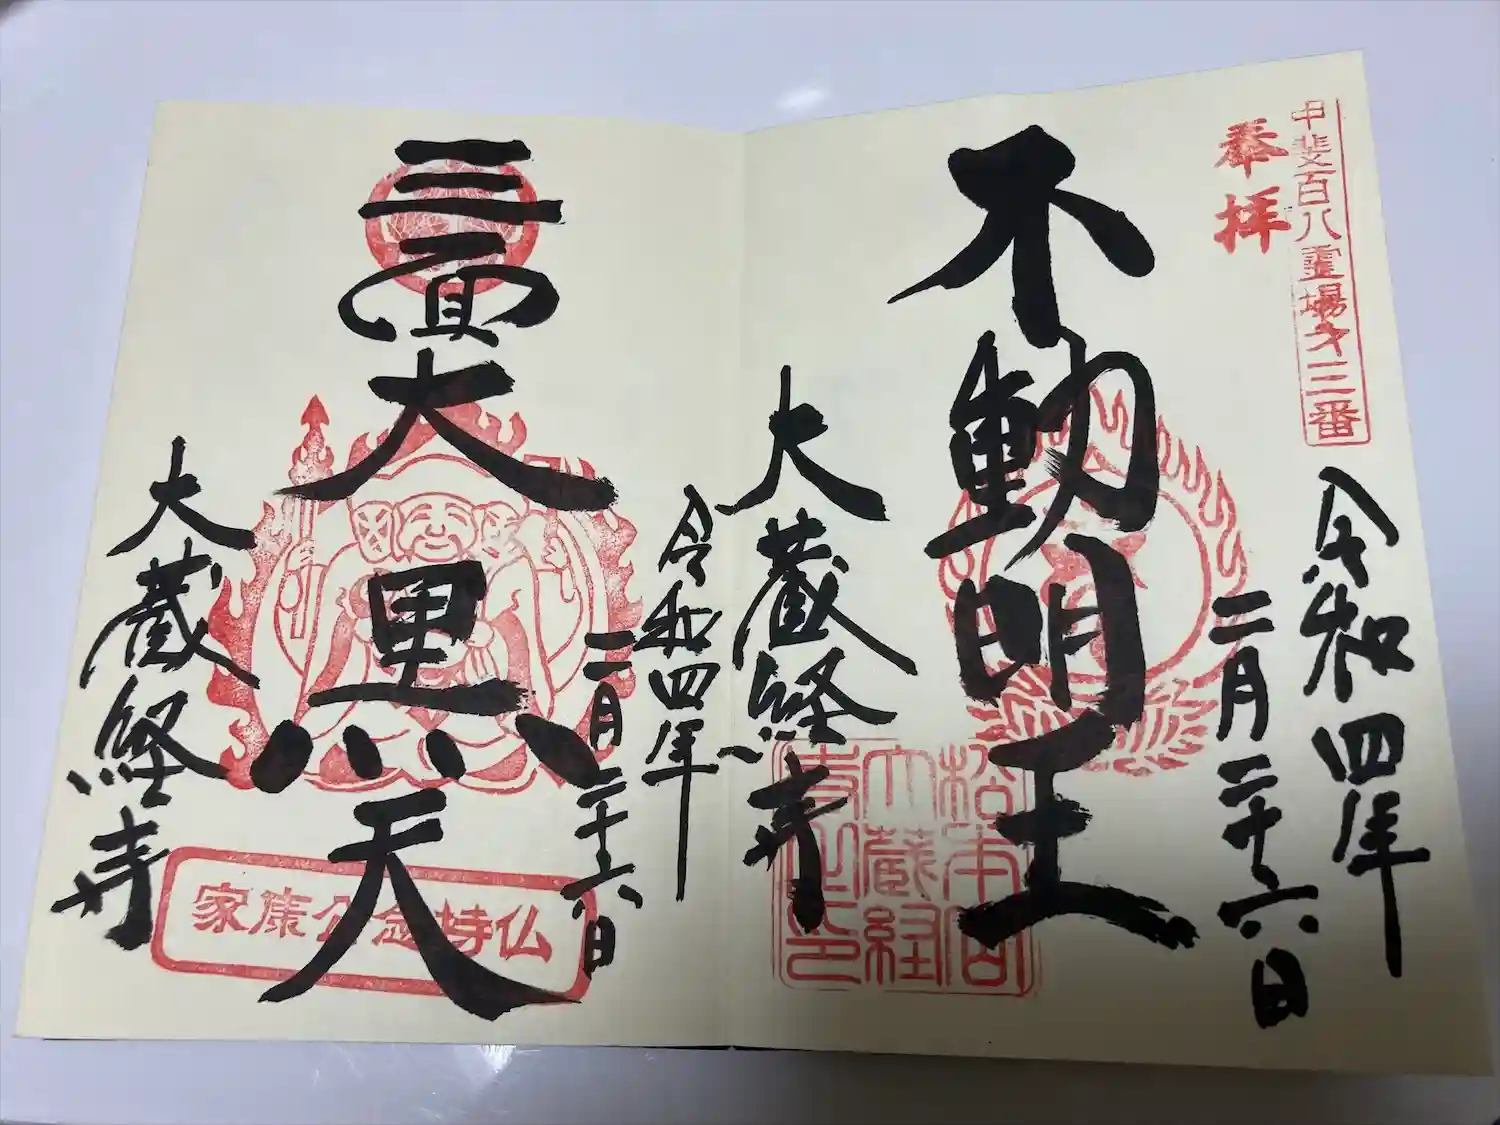 甲斐百八霊場第三番
奉拝
令和四年
二月二十六日
不動明王
大蔵経寺
令和四年
二月二十六日
三面大黒天
家康公念持仏
大蔵経寺